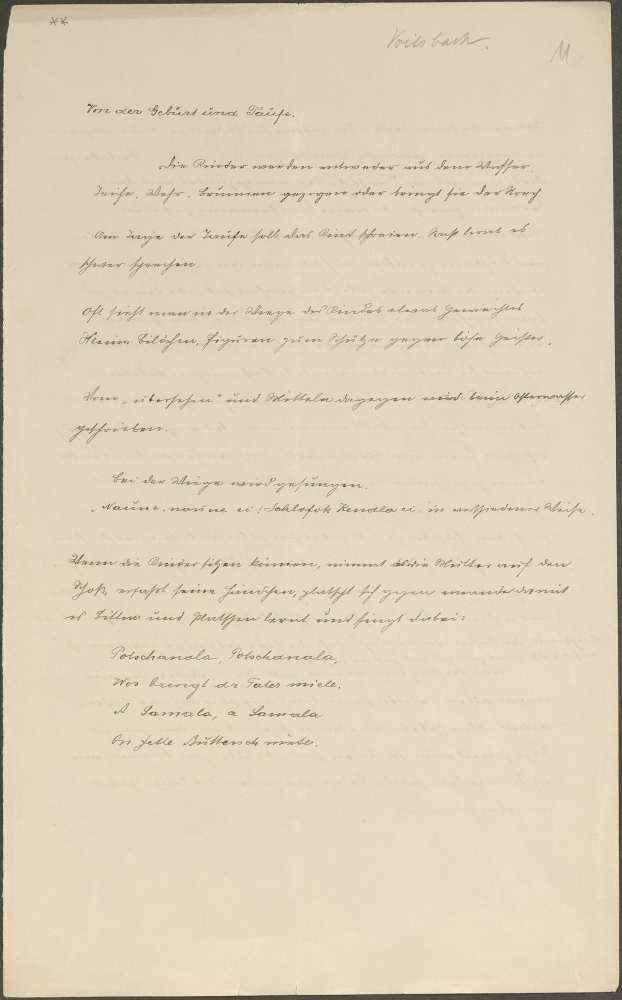 **
Voilsbach.
11
Von der Geburt und Taufe.
Die Kinder werden entweder aus dem Wasser,
Teiche, Wehr, Brunnen gezogen oder bringt sie der Storch
Am Tage der Taufe soll das Kind schreien, sonst lernt es
schwer sprechen.
Oft sieht man an der Wiege des Kindes etwas Geweihtes
Kleine Bildchen, Figuren zum Schutze gegen böse Geister.
Vom „übersehen" und Mitteln dagegen wird beim Osterwasser
geschrieben.
Bei der Wiege wird gesungen.
Naune, naune ei! Schlofok Kendla ei in verschiedener Weise.
Wenn die Kinder sitzen können, nimmt die Mutter auf den
Schoß, erfaßt seine Händchen, platscht sich gegen einander damit
es Bitten und Platschen lernt und singt dabei:
Potschanola, Potschanala,
Wos brengt dr Tater miete.
A Samala, a Samala
On fette Butterschniete.